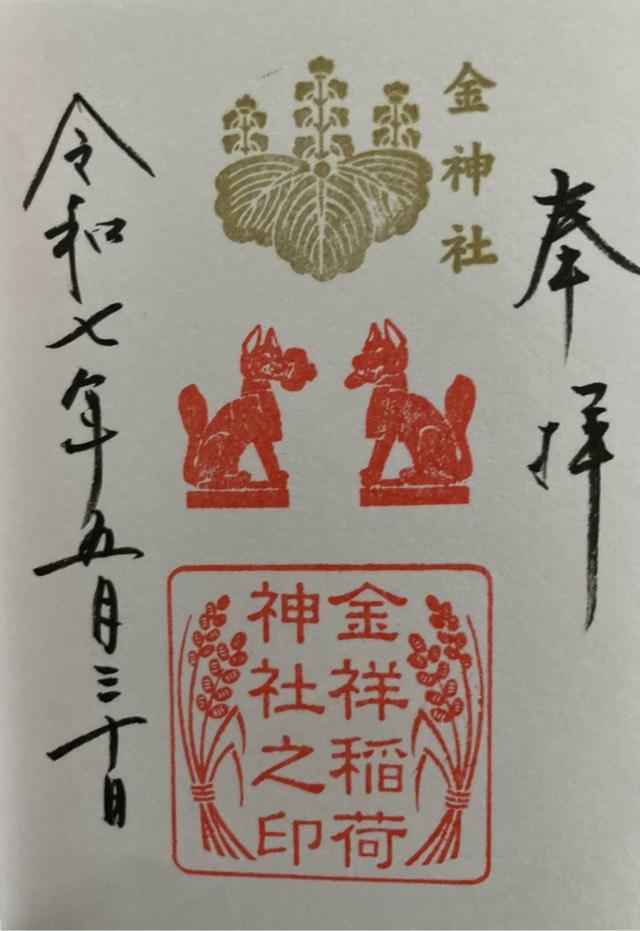 奉拝
金神社
金祥稲荷
神社之印
令和七年五月三十日